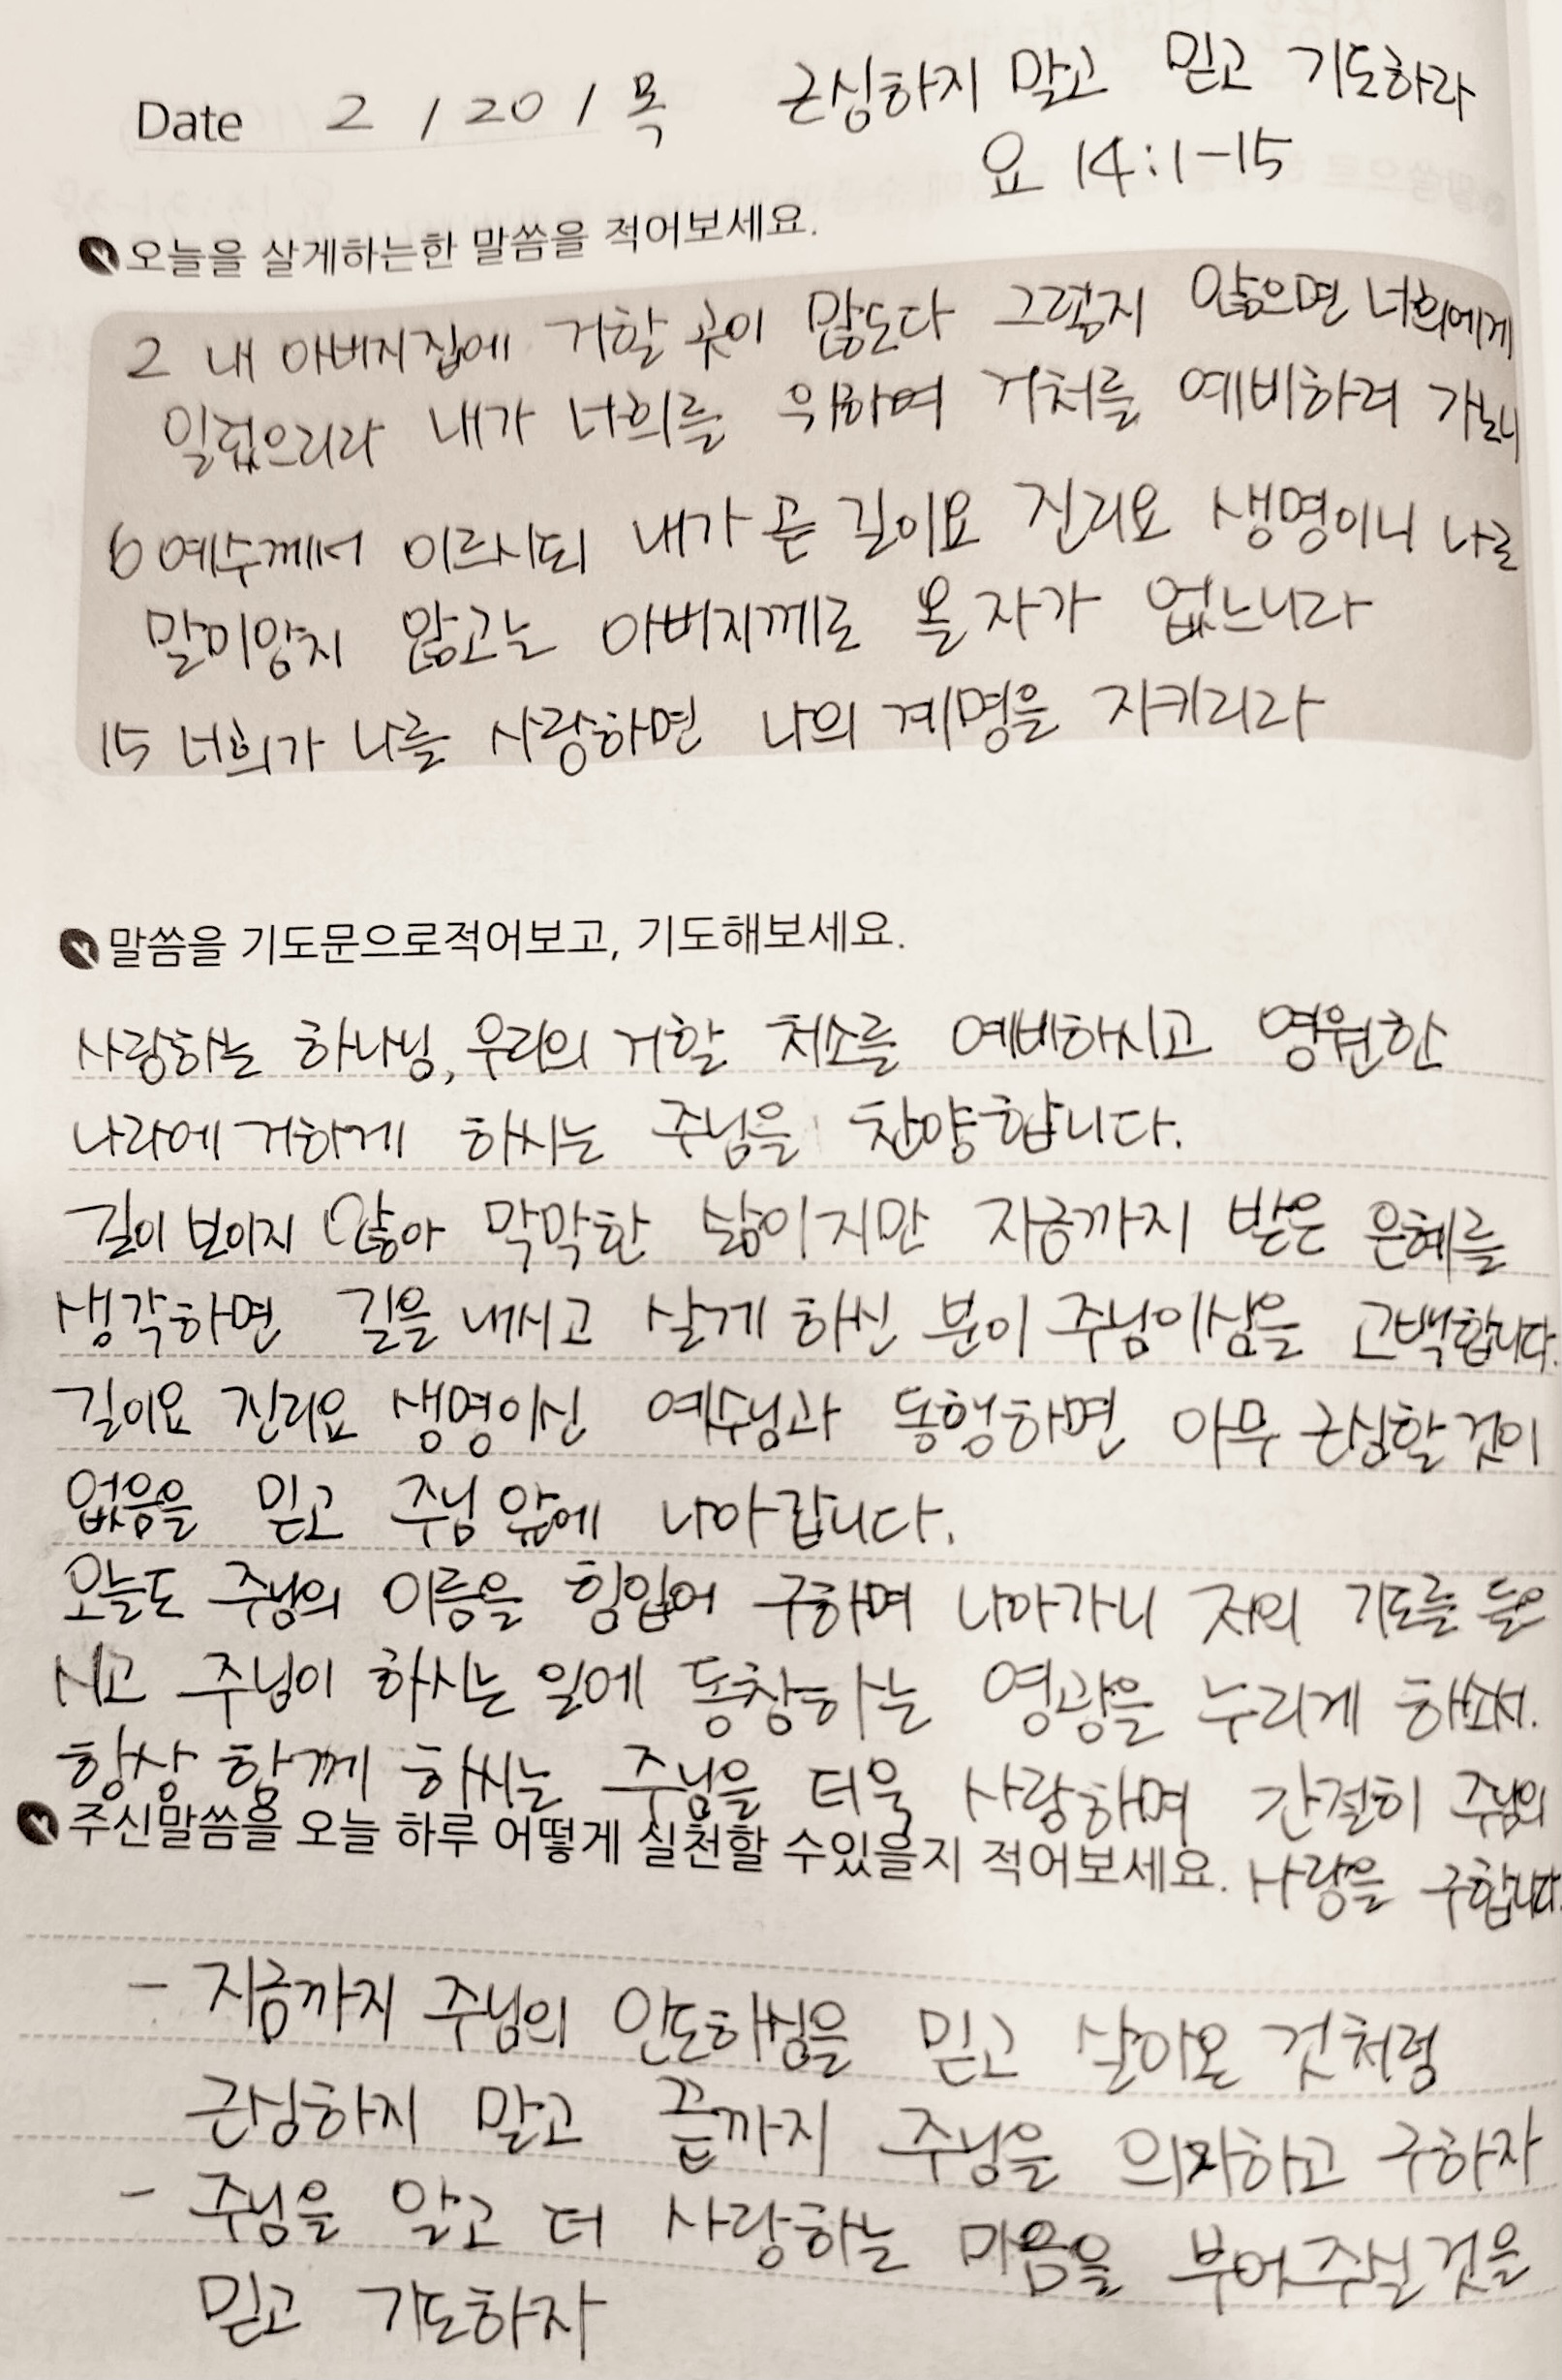 Date 2 / 20 / 목 근심하지 말고 믿고 기도하라
요 14:1-15
오늘을 살게하는한 말씀을 적어보세요.
2 내 아버지 집에 거할 곳이 많도다 그렇지 않으면 너희에게
일렀으리라 내가 너희를 위하여 거처를 예비하러 가노니
6 예수께서 이르시되 내가 곧 길이요 진리요 생명이니 나로
말미암지 않고는 아버지께로 올 자가 없느니라
15 너희가 나를 사랑하면 나의 계명을 지키리라
말씀을 기도문으로적어보고, 기도해보세요.
사랑하는 하나님, 우리의 거할 처소를 예비하시고 영원한
나라에 거하게 하시는 주님을 찬양합니다.
길이 보이지 않아 막막한 삶이지만 지금까지 받은 은혜를
생각하면 길을 내시고 살게 하신 분이 주님이심을 고백합니다.
길이요 진리요 생명이신 예수님과 동행하면 아무 근심할 것이
없음을 믿고 주님 앞에 나아갑니다.
오늘도 주님의 이름을 힘입어 구하며 나아가니 저의 기도를 들으
시고 주님이 하시는 일에 동참하는 영광을 누리게 하소서.
항상 함께 하시는 주님을 더욱 사랑하며 간절히 주님의
사랑을 구합니다.
주신말씀을 오늘 하루 어떻게 실천할 수있을지 적어보세요.
- 지금까지 주님의 인도하심을 믿고 살아온 것처럼
근심하지 말고 끝까지 주님을 의지하고 구하자
- 주님을 알고 더 사랑하는 마음을 부어주실 것을
믿고 기도하자